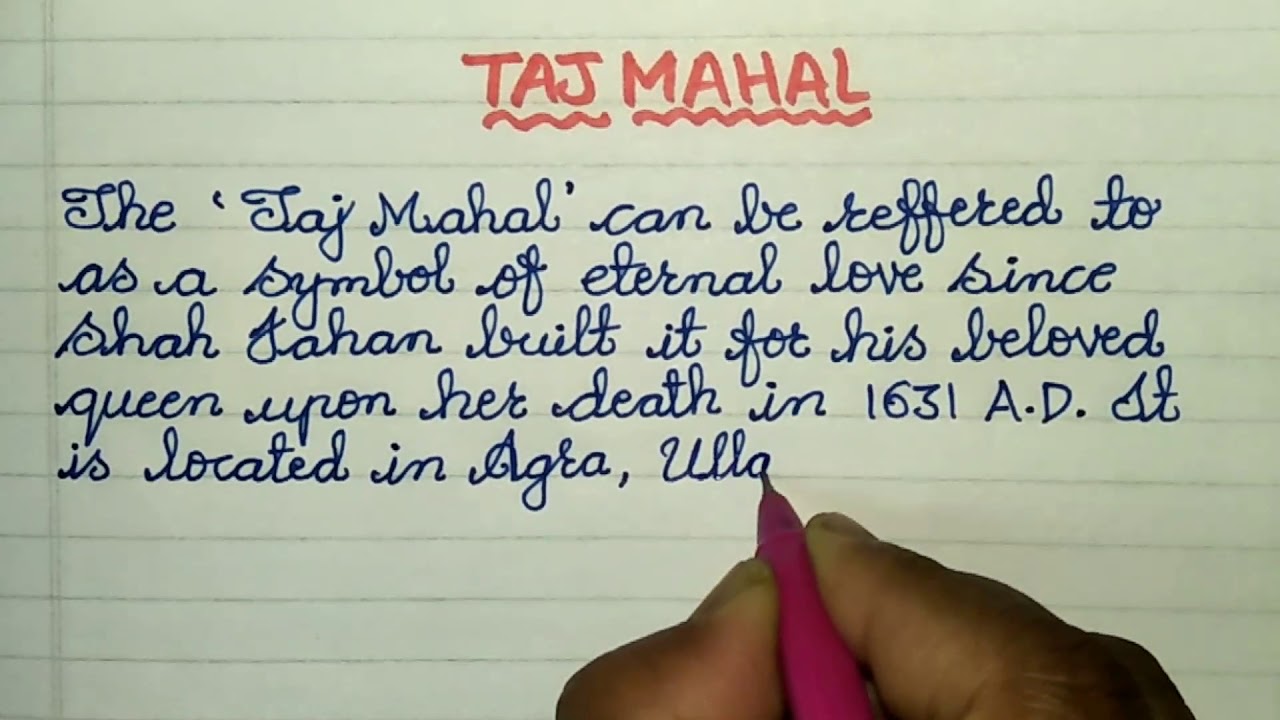 TAJ MAHAL
The 'Taj Mahal' can be reffered to
as a symbol of eternal love since
Shah Jahan built it for his beloved
queen upon her death in 1631 A.D. It
is located in Agra,